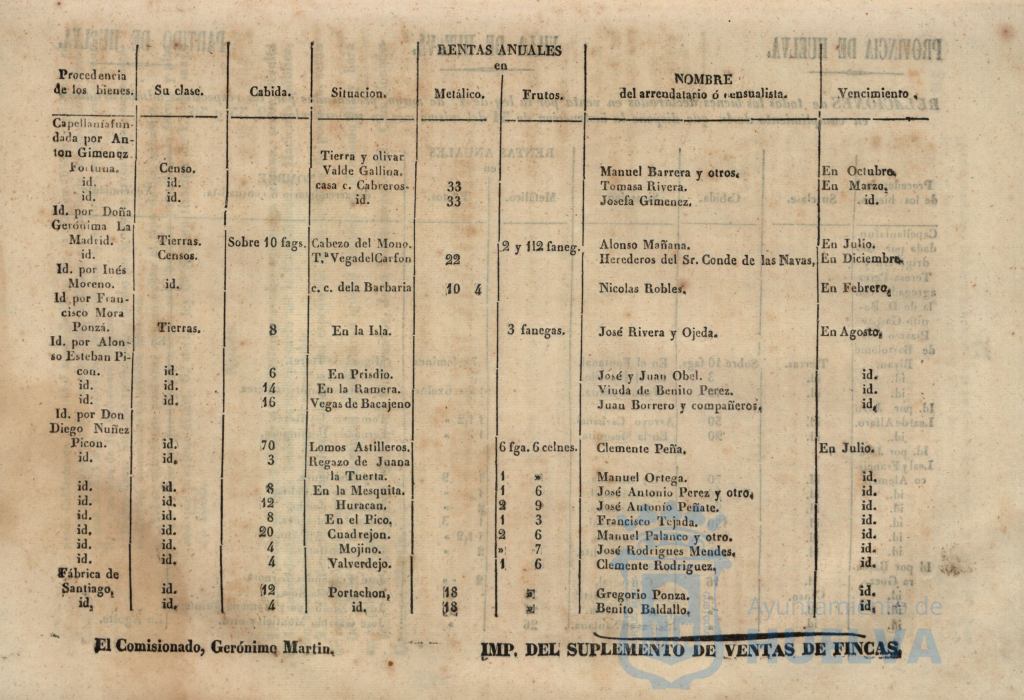 RENTAS ANUALES
en
Procedencia de los bienes. Su clase. Cabida. Situacion. Metálico. Frutos. NOMBRE del arrendatario ó censualista. Vencimiento.
Capellanía fun-
dada por An-
ton Gimenez Tierra y olivar
Fortuna. Censo. Valde Gallina. Manuel Barrera y otros. En Octubre.
id. id. casa c. Cabreros- 33 Tomasa Rivera. En Marzo.
id. id. id. 33 Josefa Gimenez. id.
Id. por Doña
Gerónima La
Madrid. Tierras. Sobre 10 fags. Cabezo del Mono. 2 y 1|2 faneg. Alonso Mañana. En Julio.
id. Censos. T.ª Vega del Carfon 22 Herederos del Sr. Conde de las Navas, En Diciembre.
Id. por Inés
Moreno. id. c. c. dela Barbaria 10 4 Nicolas Robles. En Febrero.
Id por Fran-
cisco Mora
Ponzá. Tierras. 8 En la Isla. 3 fanegas. José Rivera y Ojeda. En Agosto.
Id. por Alon-
so Esteban Pi-
con. id. 6 En Prisdio. José y Juan Obel. id.
id. id. 14 En la Ramera. Viuda de Benito Perez. id.
id. id. 16 Vegas de Bacajeno Juan Borrero y compañeros. id.
Id. por Don
Diego Nuñez
Picon. id. 70 Lomos Astilleros. 6 fga. 6 celnes. Clemente Peña. En Julio.
id. id. 3 Regazo de Juana
la Tuerta. 1 » Manuel Ortega. id.
id. id. 8 En la Mesquita. 1 6 José Antonio Perez y otro. id.
id. id. 12 Huracan. 2 9 José Antonio Peñate. id.
id. id. 8 En el Pico. 1 3 Francisco Tejada. id.
id. id. 20 Cuadrejon. 2 6 Manuel Palanco y otro. id.
id. id. 4 Mojino. » 7 José Rodrigues Mendes. id.
id. id. 4 Valverdejo. 1 6 Clemente Rodriguez. id.
Fábrica de
Santiago. id. 12 Portachon. 18 » Gregorio Ponza. id.
id. id. 4 id. 18 » Benito Baldallo. id.
El Comisionado, Gerónimo Martin.
IMP. DEL SUPLEMENTO DE VENTAS DE FINCAS.
Ayuntamiento de
HUELVA